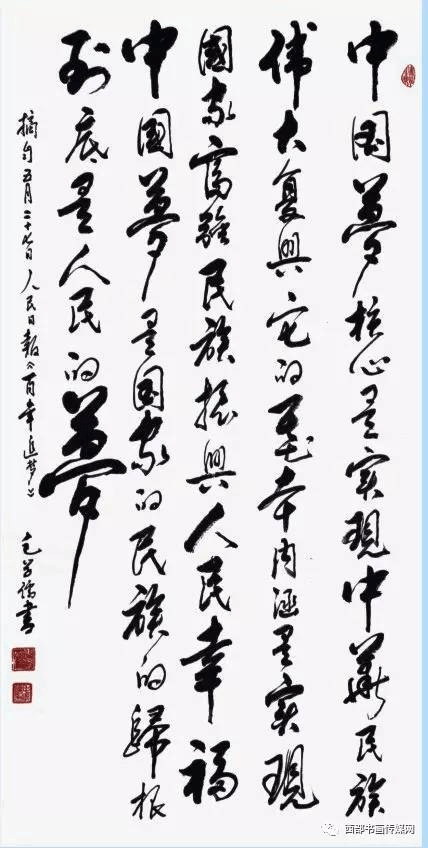 中国夢核心是实現中華民族
伟大复興它的基本内涵是实現
國家富強民族振興人民幸福
中國夢是国家的民族的歸根
到底是人民的夢
摘自五月二十七日人民日報《百年追梦》
书
西部书画传媒网